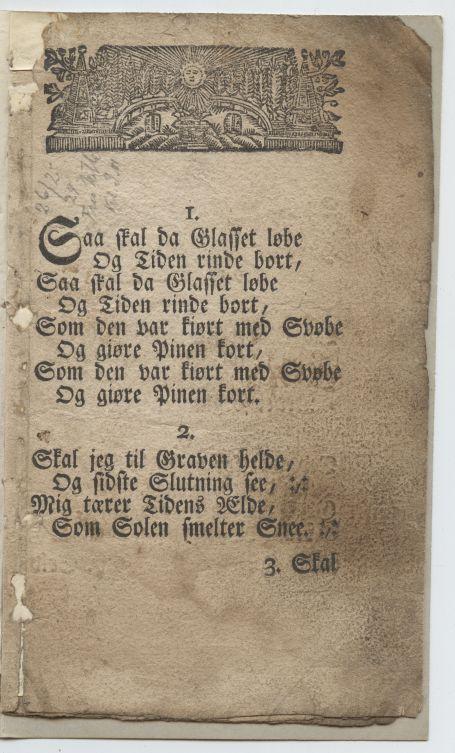 1.
Saa skal da Glasset løbe
Og Tiden rinde bort,
Saa skal da Glasset løbe
Og Tiden rinde bort,
Som den var kiørt med Svøbe
Og giøre Pinen kort,
Som den var kiørt med Svøbe
Og giøre Pinen kort.
2.
Skal jeg til Graven helde,
Og sidste Slutning see, :/:
Mig tærer Tidens Ælde,
Som Solen smelter Snee. :/:
3. Skal